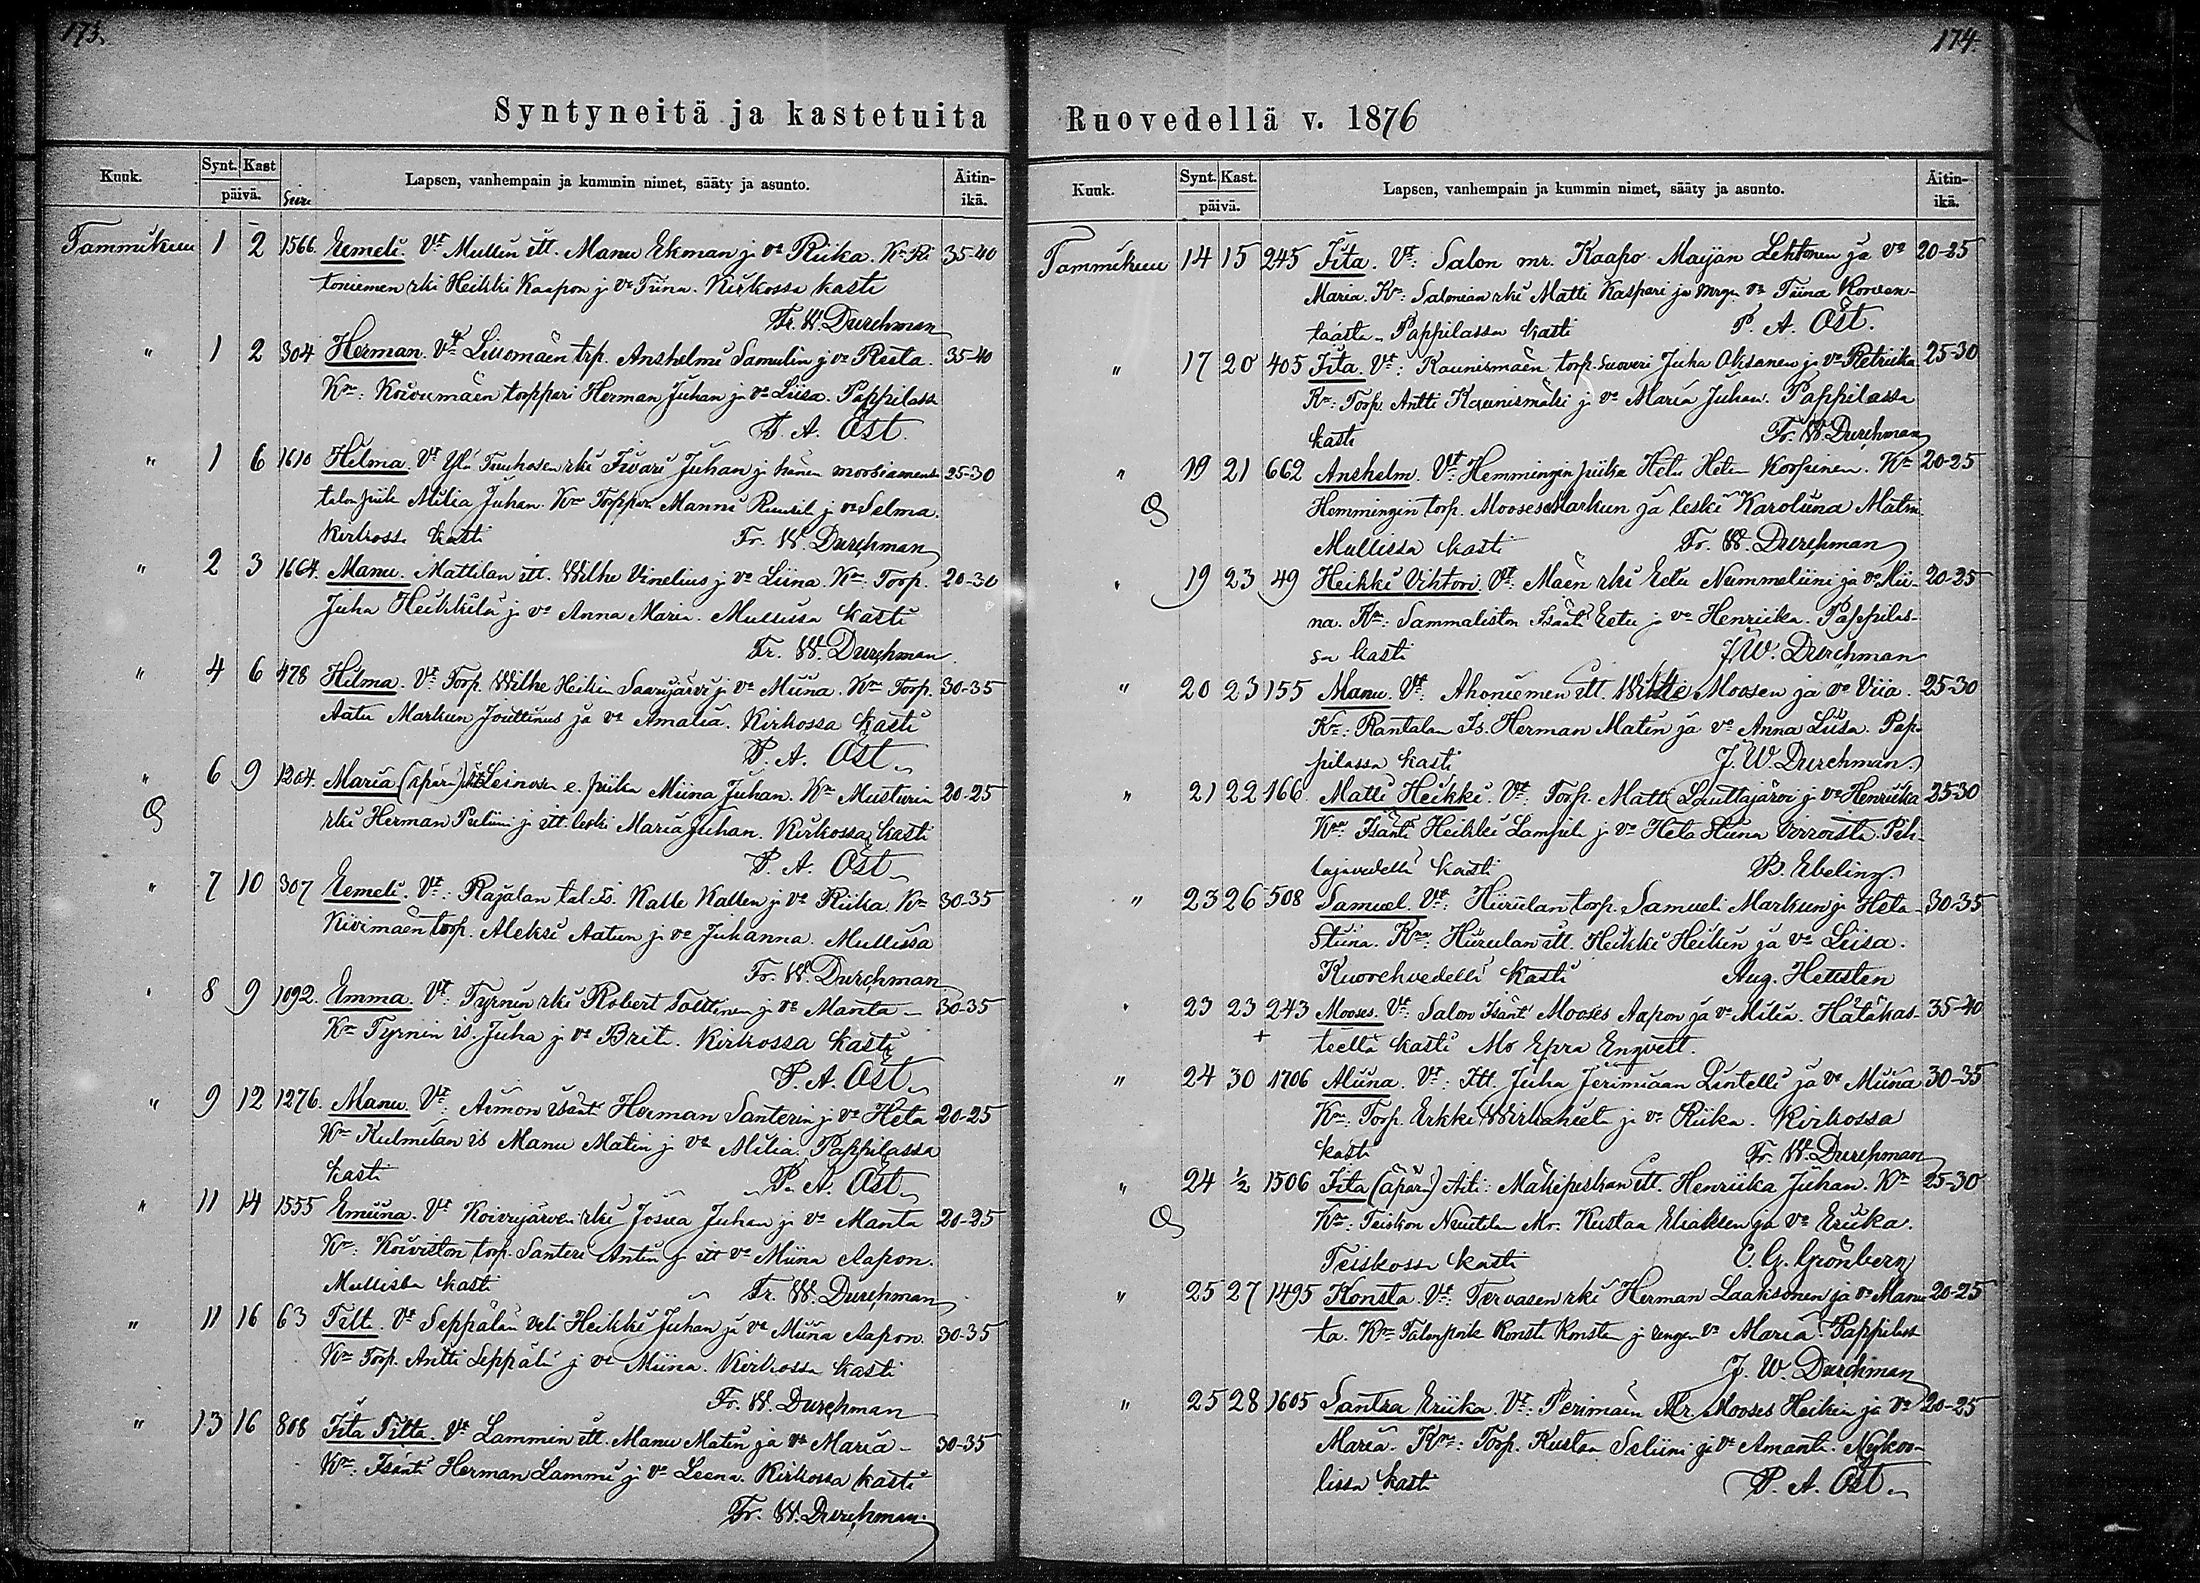 173.
Syntyneitä ja kastetuita
Kuuk. Synt. Kast päivä. Lapsen, vanhempain ja kummin nimet, sääty ja asunto. Äitin-ikä.
Tammikuu 1 2 1566. Eemeli. Vt Mullin itt. Manu Ekman j. vo Riika. Kr. 35-40
toniemen rki Heikki Kaapon j. vo Tiina. Kirkossa kasti
Fr. W. Durchman
" 1 2 304 Herman. Vt Liusmäen trp. Anshelmi Samulin j vo Rista. 35-40
Kr: Koivumäen torppari Herman Juhan ja vo Liisa. Pappilassa
P. A. Öst.
" 1 6 1610 Hilma. Vt Ylä Tuuhosen rki Iivari Juhan j. hänen 25-30
talon piika Milia Juhan. Kr Torppar. Manni j vo Selma.
Kirkossa kasti Fr. W. Durchman
" 2 3 1664. Manu. Mattilan itt. Wilhe Vinelius j vo Liina. Kr. Torp. 20-30
Juha Heikkilä j vo Anna Maria. Mullissa kasti
Fr. W. Durchman
" 4 6 478 Hilma. Vt Torp. Wilhe Heikin Saarijärvi j vo Miina. Kr Torp. 30-35
Aatu Markun Jouttinus ja vo Amalia. Kirkossa kasti
P. A. Öst.
" 6 9 1204. Maria (äpärä) Äit Leinosen e. piika Miina Juhan. Kr Musturin 20-25
rki Herman j. itt. leski Maria Juhan. Kirkossa kasti
P. A. Öst
" 7 10 307 Eemeli. Vt: Rajalan tal. is. Kalle Kallen j vo Riika. Kr 30-35
Kivimäen torp. Aleksi Aatun j vo Juhanna. Mullissa
Fr. W. Durchman
" 8 9 1092. Emma. Vt: Tyrnin rki Robert Tolttinen j vo Manta 30-35
Kr Tyrnin is. Juha j. vo Brit. Kirkossa kasti
P. A. Öst.
" 9 12 1276. Manu. Vt: Aimon isänt Herman Santerin j vo Heta 20-25
Kr Kulmalan is Manu Matin j vo Milia. Pappilassa
kasti P. A. Öst.
" 11 14 1555 Emiina. Vt Koivujärven rki Josua Juhan j vo Manta 20-25
Kr: Koiviston torp. Santeri Antin j itt vo Miina Aapon.
Mullissa kasti Fr. W. Durchman
" 11 16 63 Vt Seppälän veli Heikki Juhan ja vo Miina Aapon. 30-35
Kr Torp. Antti Seppälä j vo Miina. Kirkossa kasti
Fr. W. Durchman
" 13 16 808 Iita Vt Lammin itt. Manu Matin ja vo Maria 30-35
Kr: Isäntä Herman Lammi j vo Leena. Kirkossa kasti
Fr. W. Durchman.
174.
Ruovedellä v. 1876
Kuuk. Synt. Kast. päivä. Lapsen, vanhempain ja kummin nimet, sääty ja asunto. Äitin-ikä.
Tammikuu 14 15 245 Iita. Vt: Salon mr. Kaapo Maijan Lehtonen ja vo 20-25
Maria. Kr: Salonian rki Matti Kaspari ja mrgn vo Tiina Korven-
taasta. Pappilassa kasti P. A. Öst.
" 17 20 405 Iita. Vt: Kaunismäen torp. Juha j vo Retriika 25-30
Kr: Torp. Antti Kaunismäki j vo Maria Juhan. Pappilassa
kasti Fr. W. Durchman
" 19 21 662 Anshelm. Vt: Hemmingin piika Heta Korpinen. Kr 20-25
Hemmingin torp. Mooses Markun ja leski Karoliina Matin
Mullissa kasti Fr. W. Durchman
" 19 23 49 Heikki Vihtori. Vt: Mäen rki Eetu Nummeliini ja vo Mii- 20-25
na. Kr: Sammaliston Isäntä Eetu j vo Henriika. Pappilas-
sa kasti J. W. Durchman
" 20 23 155 Manu. Vt: Ahoniemen itt. Wilhe Moosen ja vo Viia. 25-30
Kr: Rantalan Is. Herman Matin ja vo Anna Liisa. Pap-
pilassa kasti J. W. Durchman
" 21 22 166. Matti Heikki. Vt: Torp. Matti Louttajärvi j vo Henriika 25-30
Kr: Isäntä Heikki Lampil j vo Heta Stiina Virroista. Pih-
lajavedellä kasti B. Ebeling
" 23 26 508 Samuel. Vt: Hirulan torp. Samueli Markun j Heta 30-35
Stiina. Kr: Hirulan itt. Heikki Heikin ja vo Liisa.
Kuorehvedellä kasti Aug. Hellsten
" 23 23 243 Mooses. Vt: Salon Isänt Mooses Aapon ja vo Milia. Hätäkas- 35-40
+ teella kasti Mo Epra Enqvist.
" 24 30 1706 Miina. Vt: Itt. Juha Jerimiaan Lintelli ja vo Miina 30-35
Kr: Torp. Erkki j vo Riika. Kirkossa
kasti Fr. W. Durchman
" 24 ½ 1506 Iita (äpärä) Äiti: Mäkipeskan itt. Henriika Juhan. Kr 25-30
Kr: Teiskon Mr. Kustaa Eliaksen ja vo Eriika.
Teiskossa kasti C. G. Grönberg
" 25 27 1495 Konsta. Vt: Tervasen rki Herman Laaksonen ja vo Man- 20-25
ta. Kr Talonpoik Konsta Konstan j vo Maria. Pappilass
J. W. Durchman
" 25 28 1605 Santra Eriika. Vt: Perimäen Mr. Mooses Heikin ja vo 20-25
Maria. Kr: Torp. Kustaa Seliini j vo Amanta.
lissa kasti P. A. Öst.